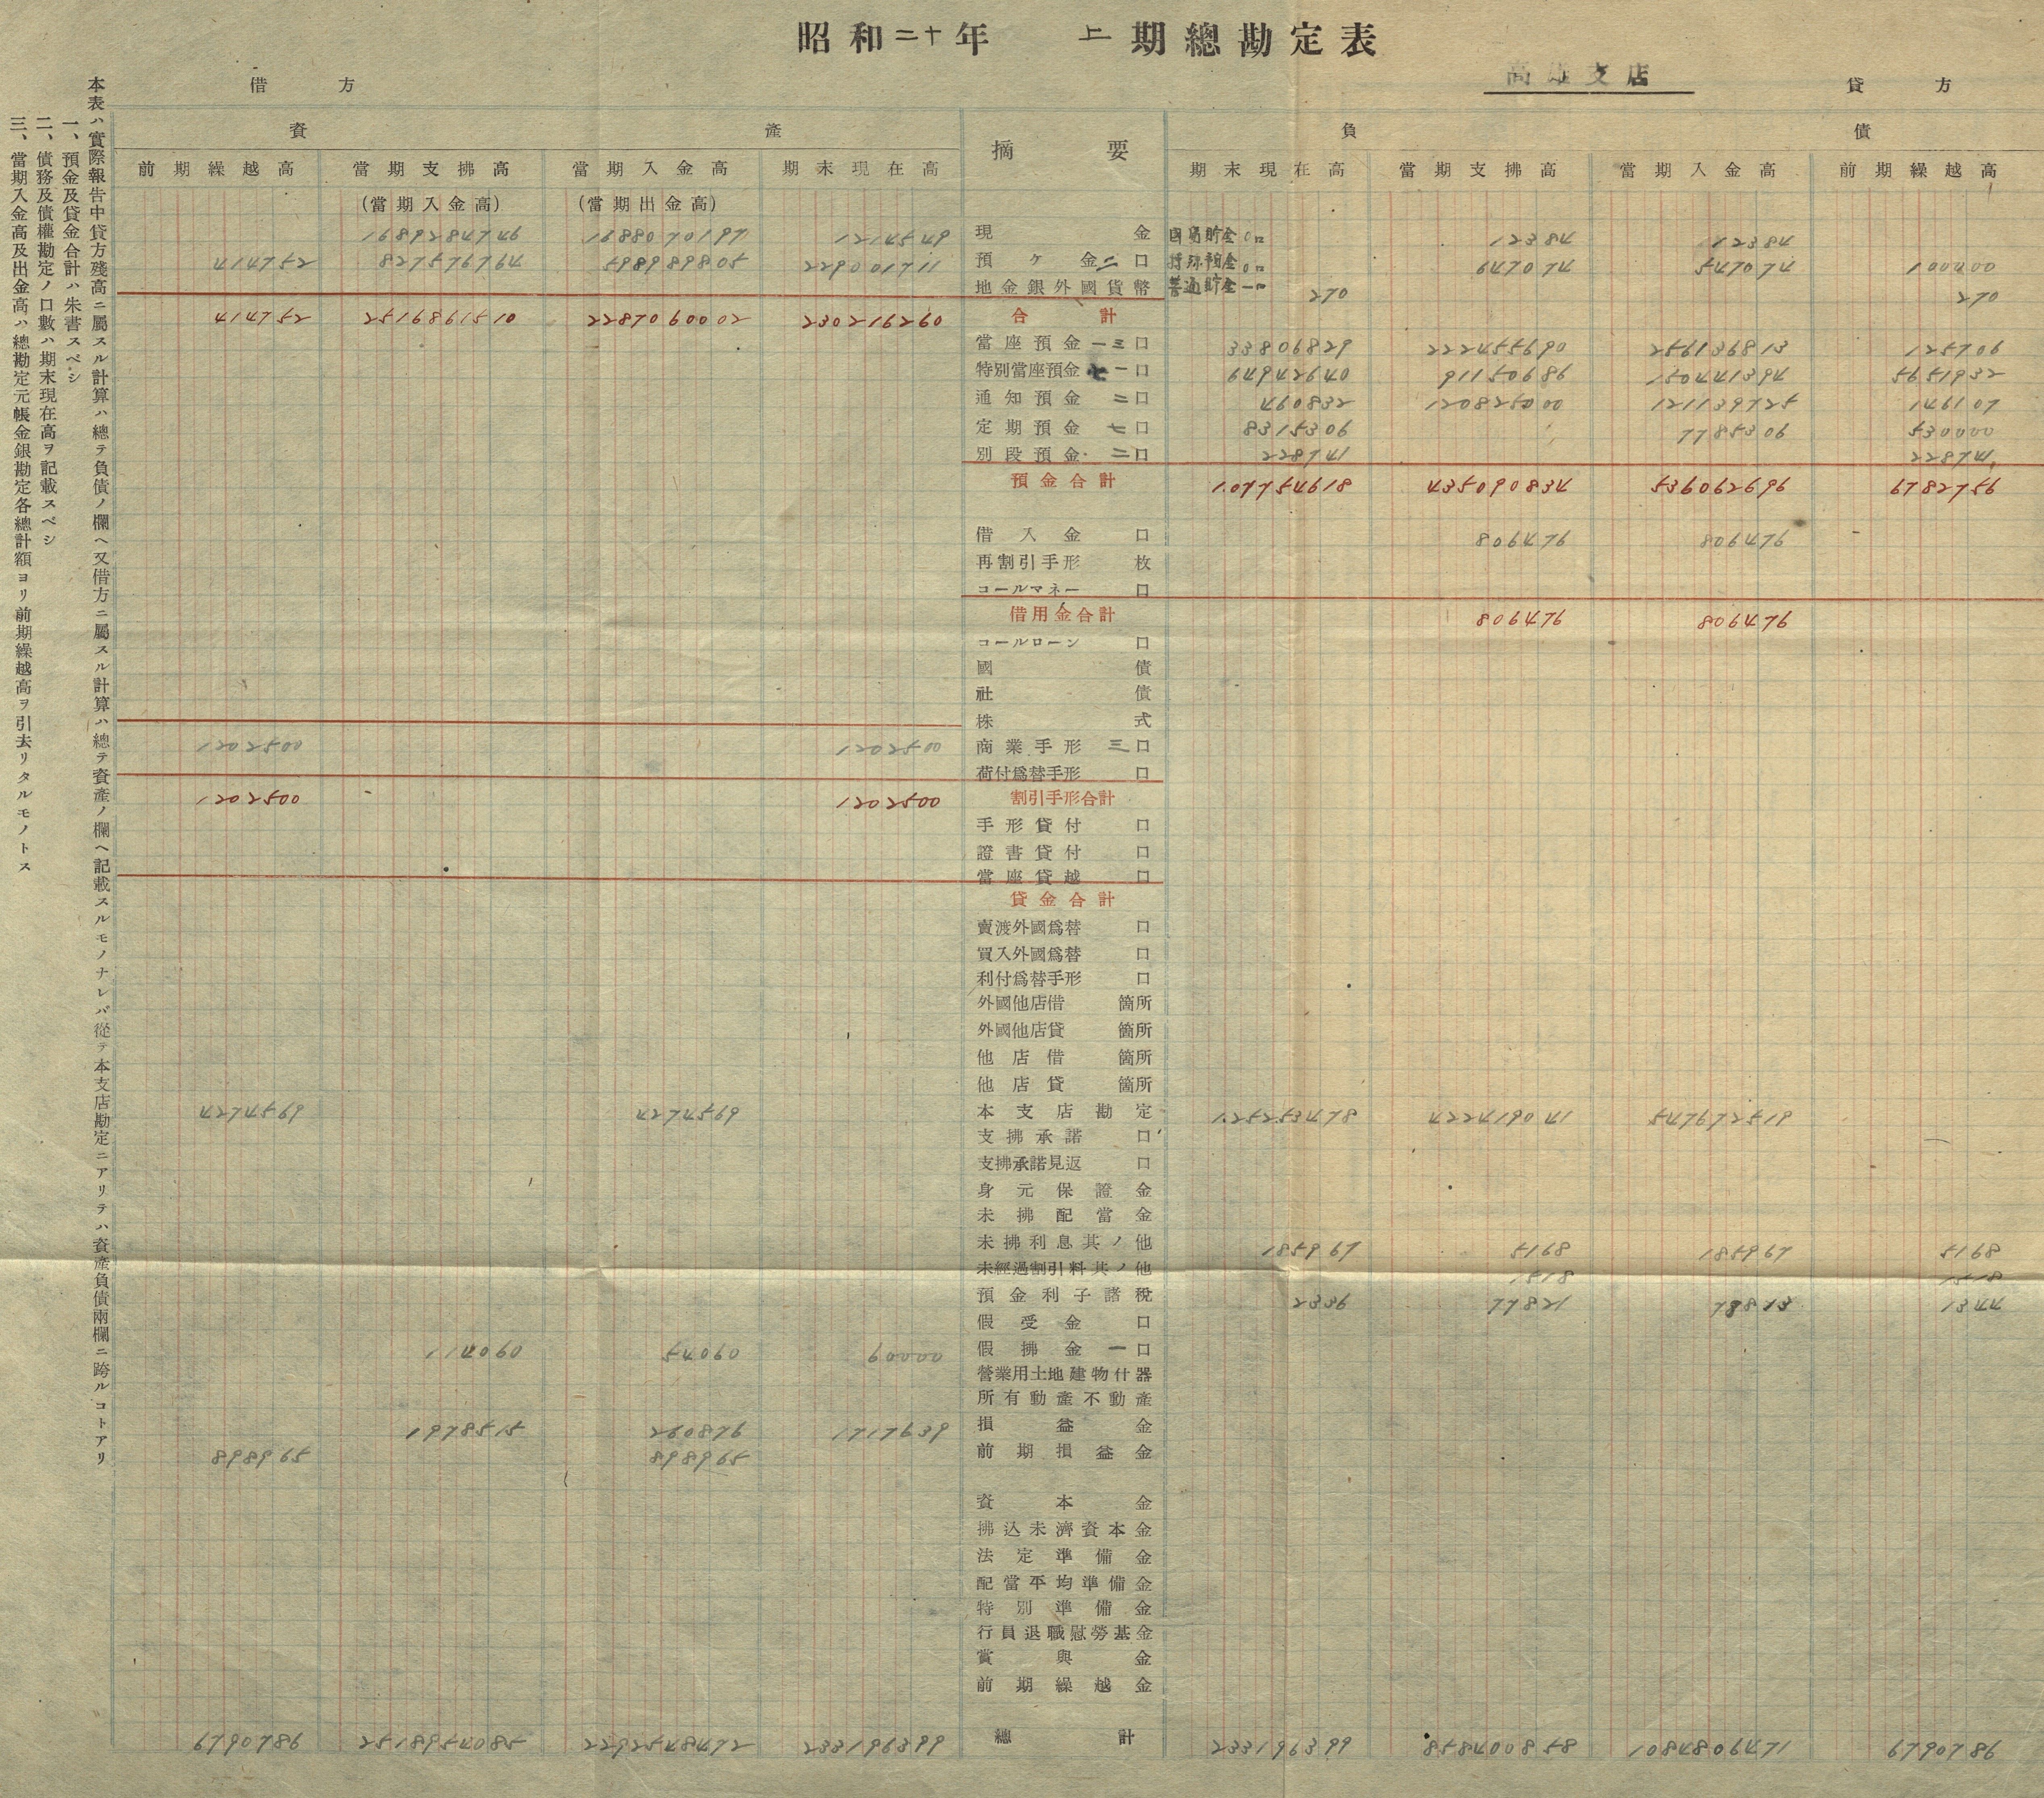 昭和二十年 上期總勘定表
高雄支店
借方 貸方
資產 摘要 負債
前期繰越高 當期支拂高 當期入金高 期末現在高 期末現在高 當期支拂高 當期入金高 前期繰越高
(當期入金高) (當期出金高)
1689284746 1688070197 1214549 現金 國民貯金0口 12384 12384
414752 827576764 598989805 229001711 預ケ金二口 特殊預金0口 647074 547074 100000
地金銀外國貨幣 普通貯金一口 270 270
414752 2516861510 2287060002 230216260 合計
當座預金一三口 33806829 222455690 256136813 125706
特別當座預金七一口 64942640 91150686 150441394 5651932
通知預金二口 460832 120825000 121139725 146107
定期預金七口 8315306 7785306 530000
別段預金二口 228741 228741
預金合計 107754618 435090834 536062696 6782756
借入金口 806476 806476
再割引手形枚
コールマネー口
借用金合計 806476 806476
コールローン口
國債
社債
株式
1202500 1202500 商業手形三口
荷付爲替手形口
1202500 1202500 割引手形合計
手形貸付口
證書貸付口
當座貸越口
貸金合計
賣渡外國爲替口
買入外國爲替口
利付爲替手形口
外國他店借箇所
外國他店貸箇所
他店借箇所
他店貸箇所
4274569 4274569 本支店勘定 125253478 422419041 547672519
支拂承諾口
支拂承諾見返口
身元保證金
未拂配當金
未拂利息其ノ他 185967 5168 185967 5168
未經過割引料其ノ他 1518 1518
預金利子諸稅 2336 77821 78813 1344
假受金口
114060 54060 60000 假拂金一口
營業用土地建物什器
所有動產不動產
1978515 260876 1717639 損益金
898965 898965 前期損益金
資本金
拂込未濟資本金
法定準備金
配當平均準備金
特別準備金
行員退職慰勞基金
賞與金
前期繰越金
6790786 2518954085 2292548472 233196399 總計 233196399 858400858 1084806471 6790786
本表ハ實際報吿中貸方殘高ニ屬スル計算ハ總テ負債ノ欄ヘ又借方ニ屬スル計算ハ總テ資產ノ欄ヘ記載スルモノナレバ從テ本支店勘定ニアリテハ資產負債兩欄ニ跨ルコトアリ
一、預金及貸金合計ハ朱書スベシ
二、債務及債權勘定ノ口數ハ期末現在高ヲ記載スベシ
三、當期入金高及出金高ハ總勘定元帳金銀勘定各總計額ヨリ前期繰越高ヲ引去リタルモノトス